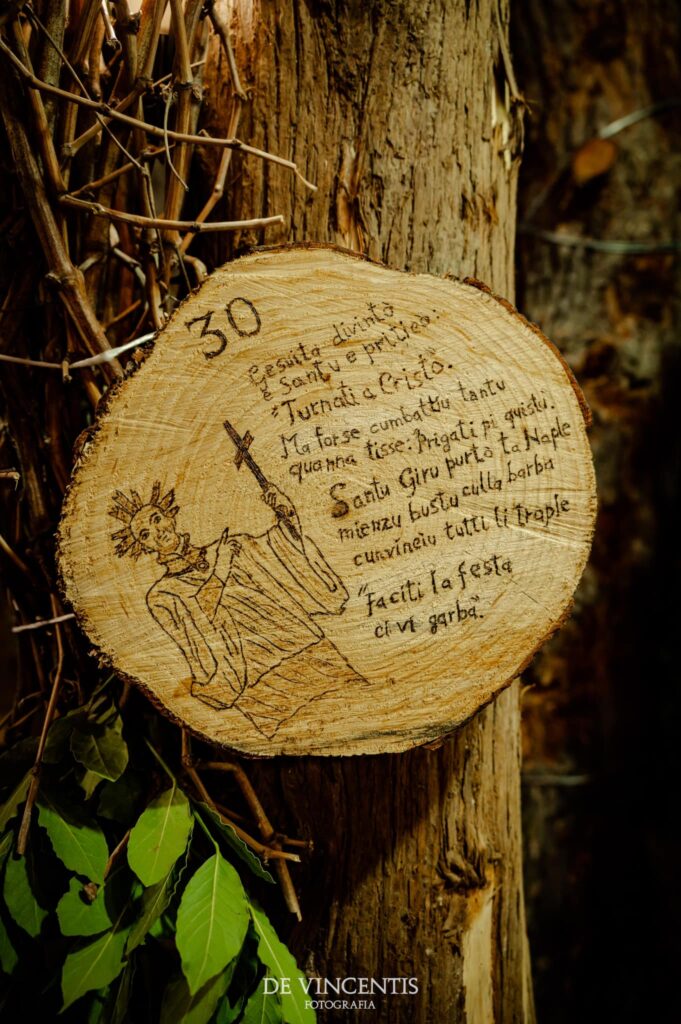 30
Gesuita divintò
e Santu e priticò:
"Turnati a Cristo".
Ma forse cumbattiu tantu
quanna tisse: Prigati pi quistu.
Santu Giru purtò ta Naple
mienzu bustu culla barba
cunvinciu tutti li traple
"Faciti la festa
ci vi garba".
DE VINCENTIS
FOTOGRAFIA